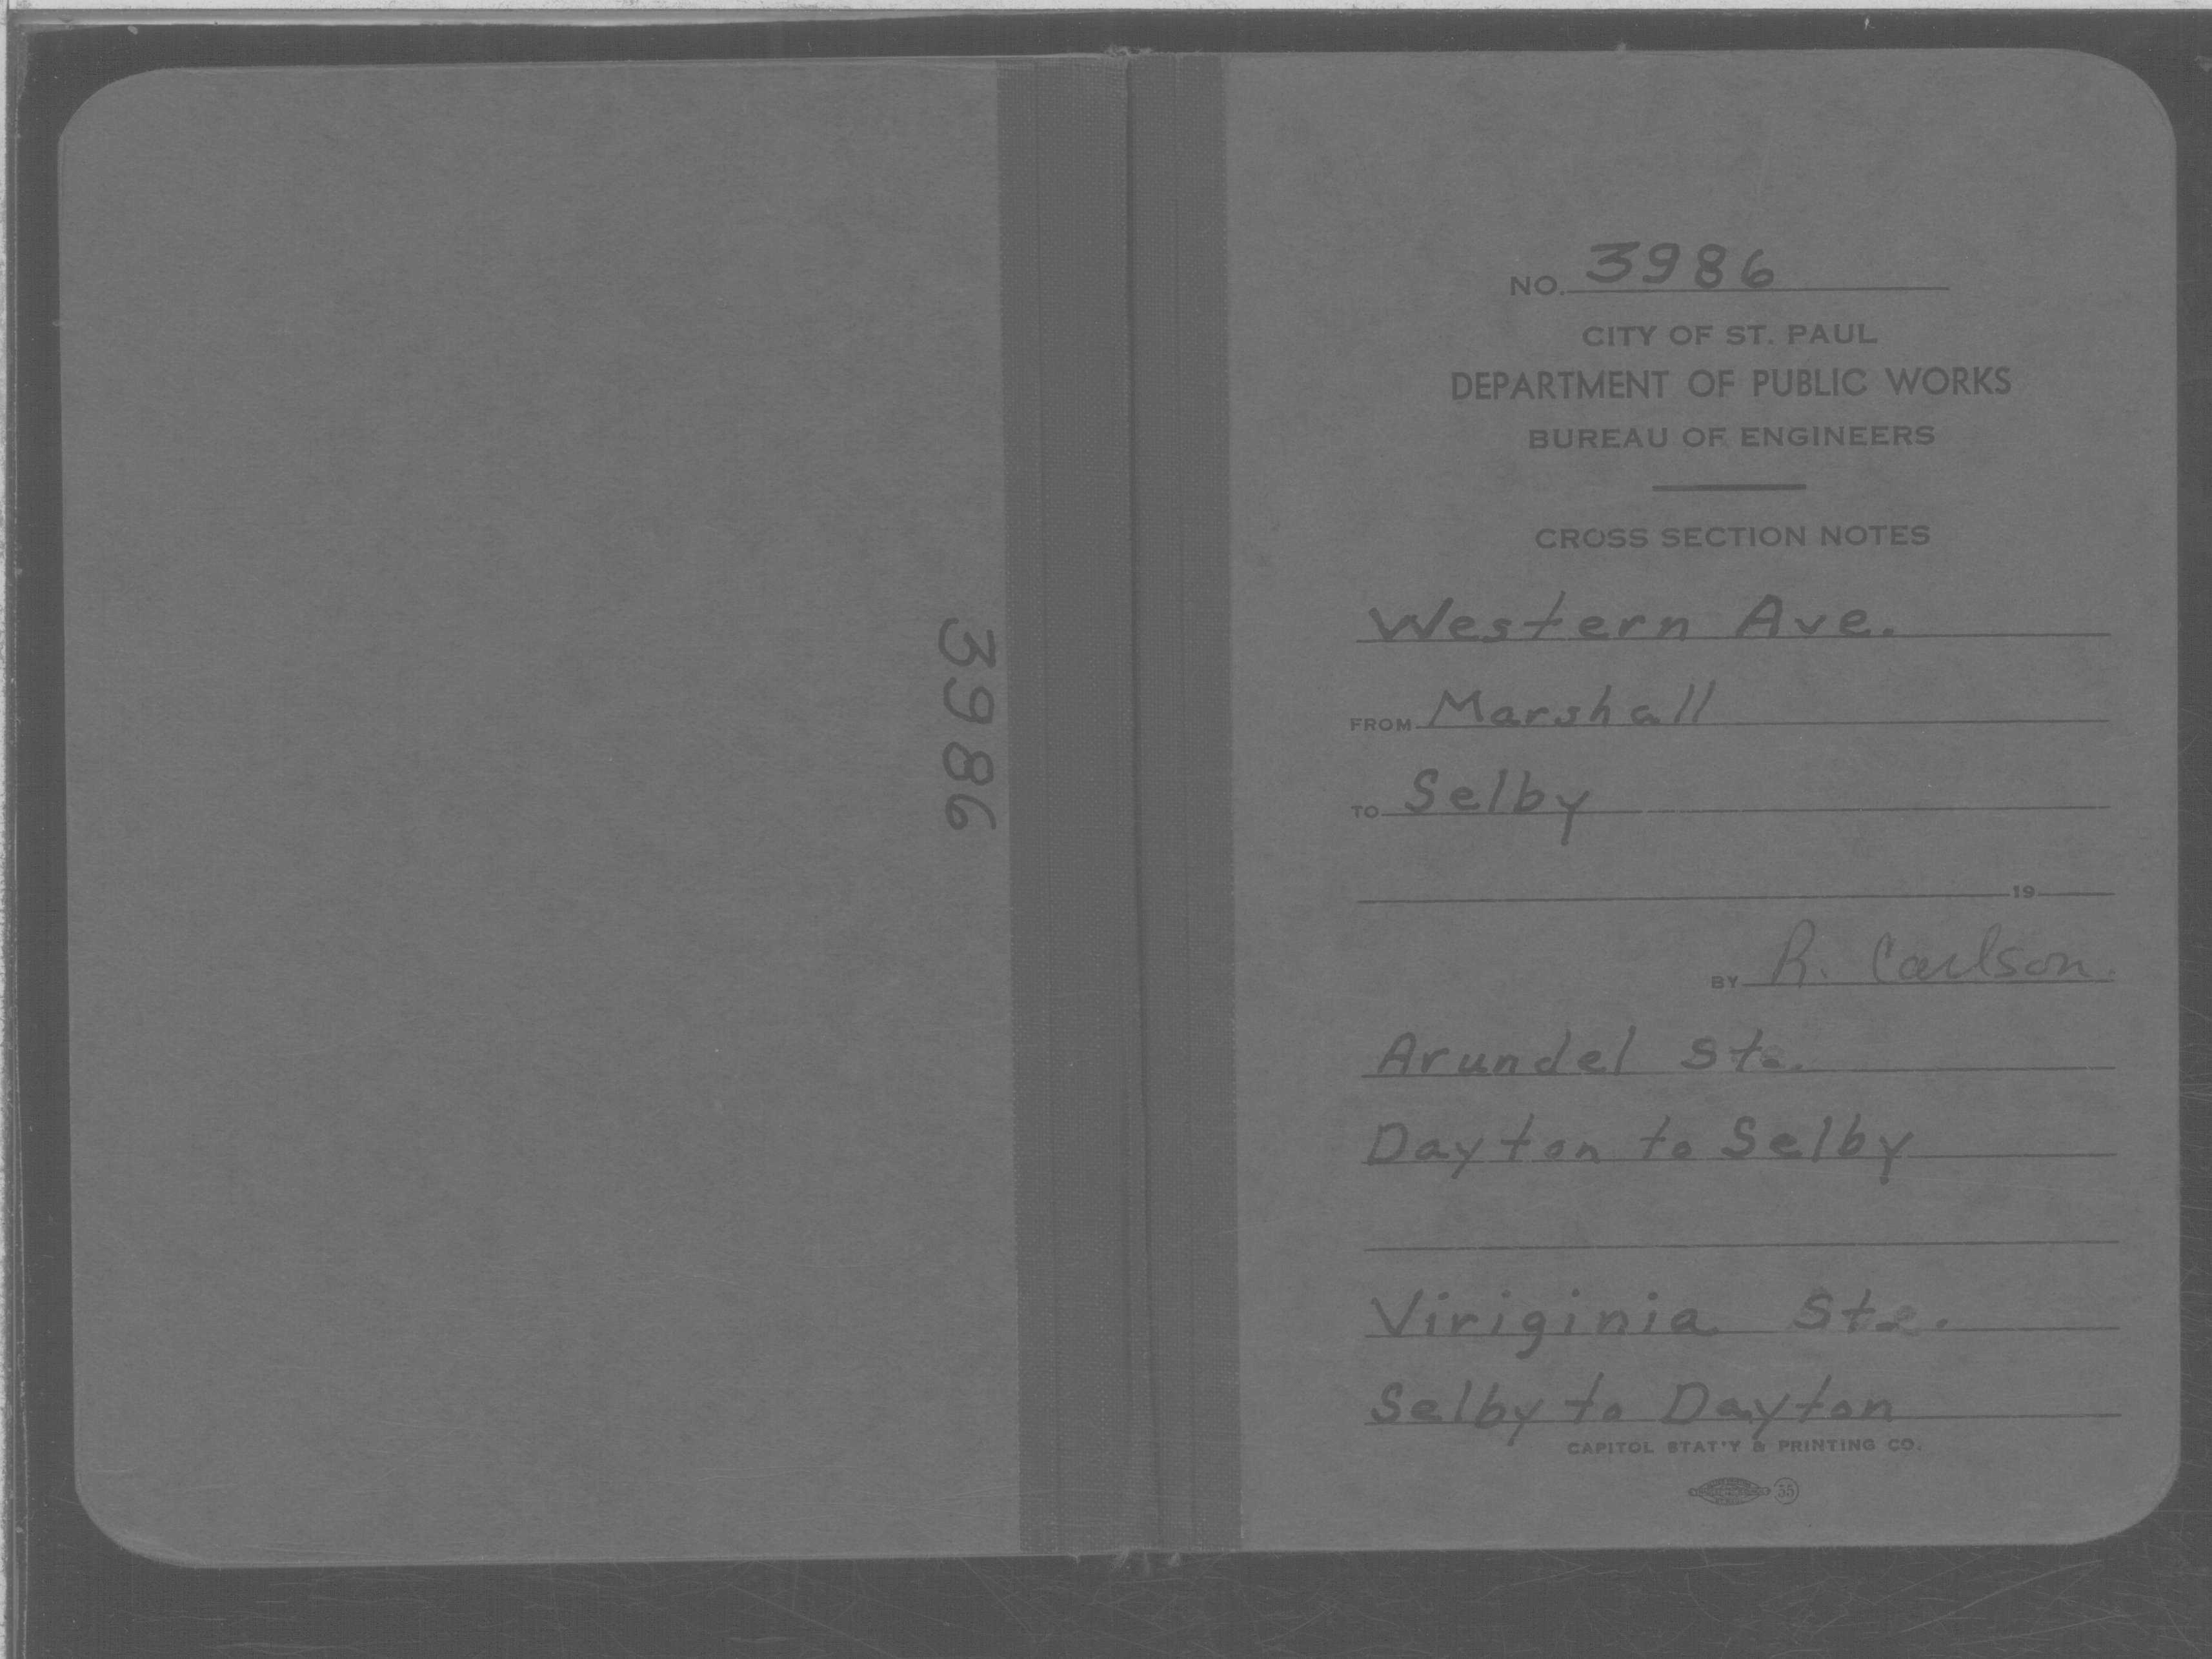 3986
NO. 3986
CITY OF ST. PAUL
DEPARTMENT OF PUBLIC WORKS
BUREAU OF ENGINEERS
CROSS SECTION NOTES
Western Ave.
FROM Marshall
TO Selby
19
BY R. Carlson.
Arundel St.
Dayton to Selby
Viriginia St.
Selby to Dayton
CAPITOL STAT'Y & PRINTING CO.
35